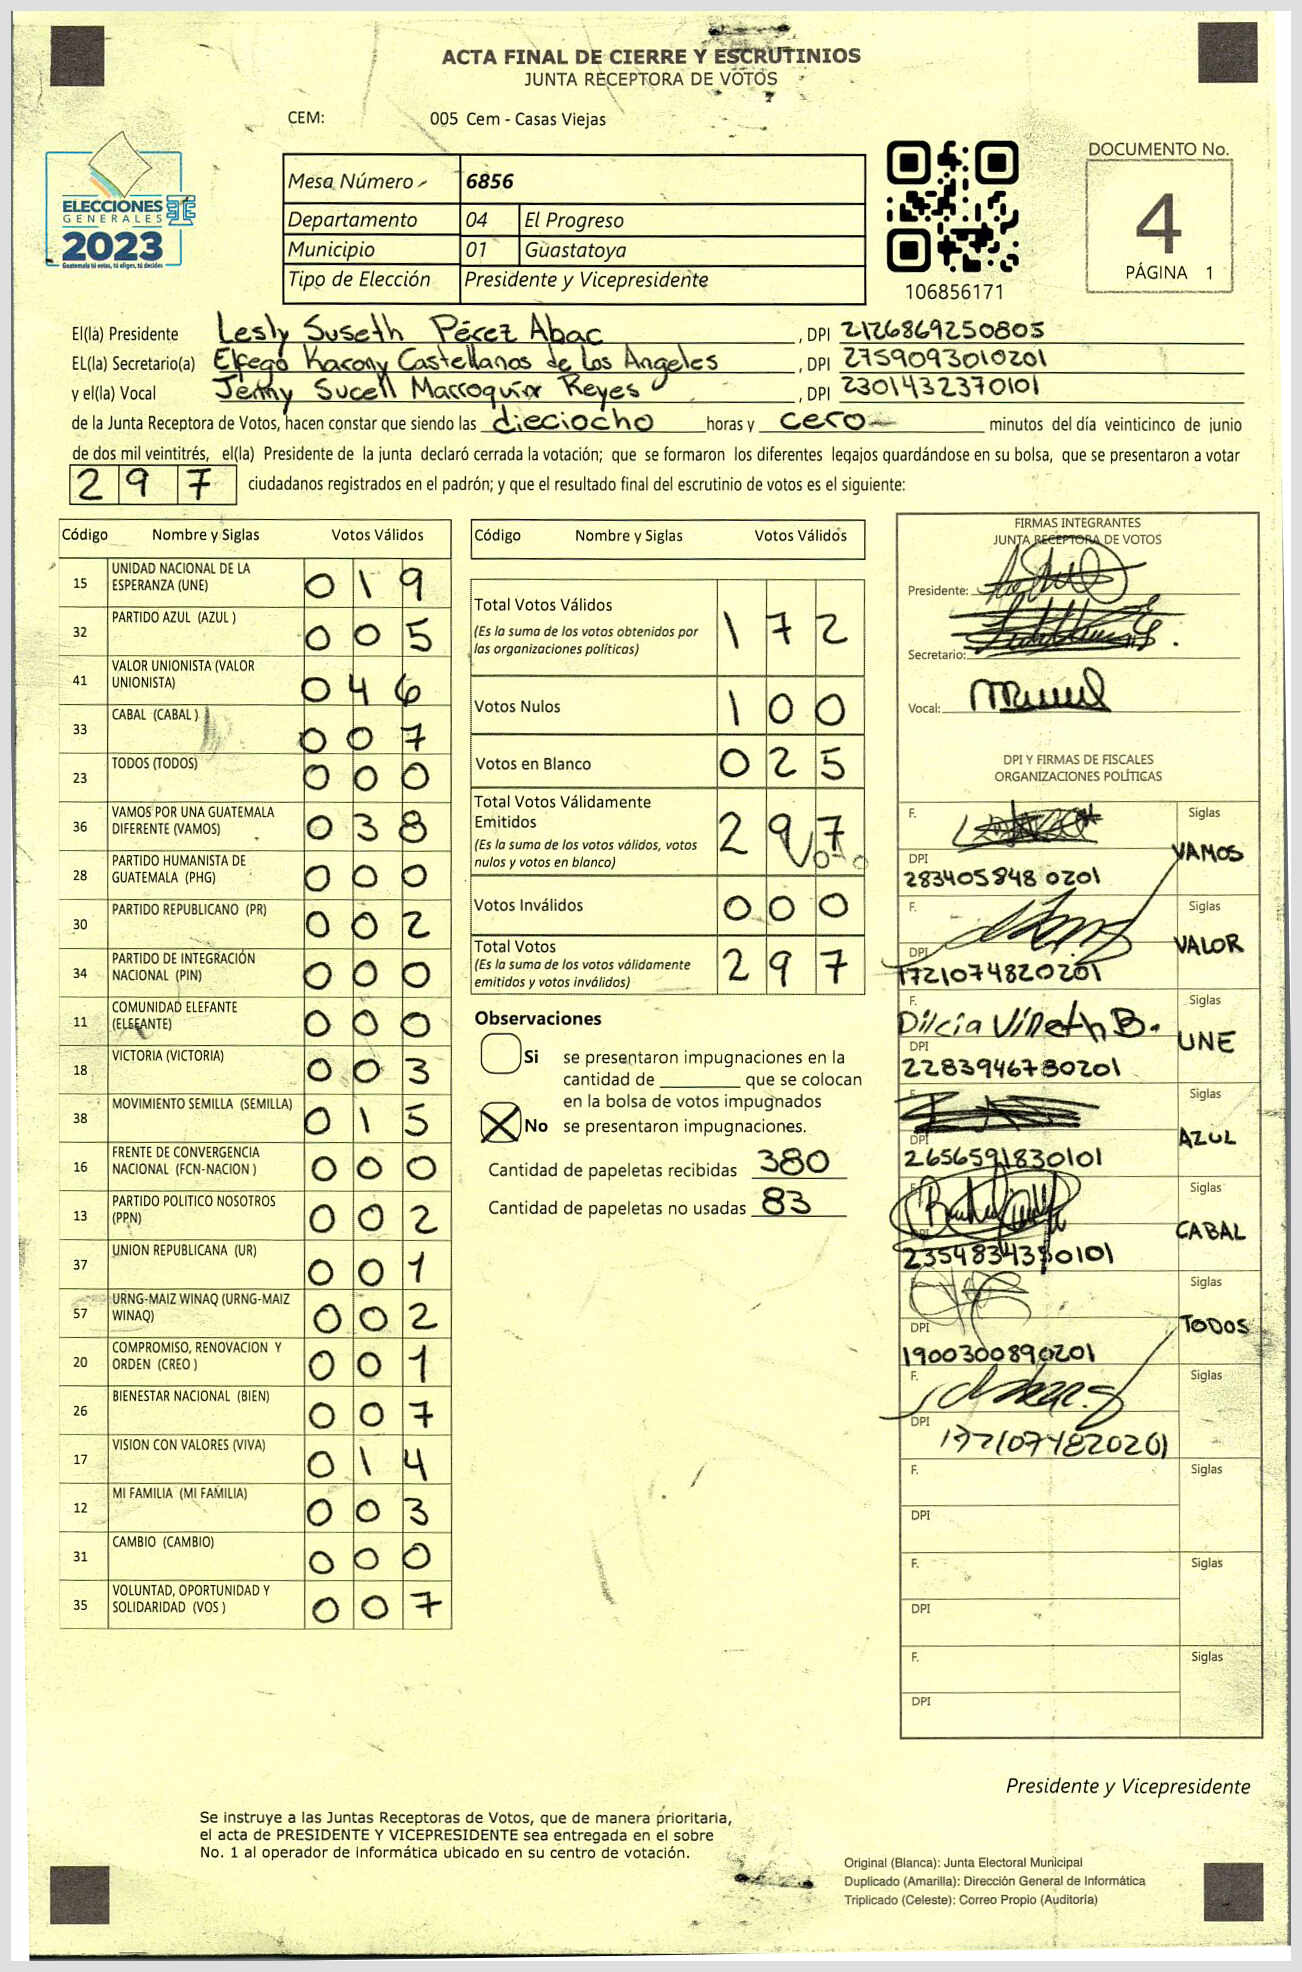 ACTA FINAL DE CIERRE Y ESCRUTINIOS
JUNTA RECEPTORA DE VOTOS
CEM: 005 Cem - Casas Viejas
ELECCIONES
GENERALES
2023
Guatemala tú votas, tú eliges, tú decides
Mesa Número 6856
Departamento 04 El Progreso
Municipio 01 Guastatoya
Tipo de Elección Presidente y Vicepresidente
106856171
DOCUMENTO No.
4
PÁGINA 1
El(la) Presidente Lesly Suseth Pérez Abac, DPI 2126869250805
EL(la) Secretario(a) Elfego Karony Castellanos de Los Angeles, DPI 2759093010201
y el(la) Vocal Jenny Sucell Marroquín Reyes, DPI 2301432370101
de la Junta Receptora de Votos, hacen constar que siendo las dieciocho horas y cero minutos del día veinticinco de junio
de dos mil veintitrés, el(la) Presidente de la junta declaró cerrada la votación; que se formaron los diferentes legajos guardándose en su bolsa, que se presentaron a votar
297 ciudadanos registrados en el padrón; y que el resultado final del escrutinio de votos es el siguiente:
Código Nombre y Siglas Votos Válidos
15 UNIDAD NACIONAL DE LA
ESPERANZA (UNE) 019
32 PARTIDO AZUL (AZUL ) 005
41 VALOR UNIONISTA (VALOR
UNIONISTA) 046
33 CABAL (CABAL ) 007
23 TODOS (TODOS) 000
36 VAMOS POR UNA GUATEMALA
DIFERENTE (VAMOS) 038
28 PARTIDO HUMANISTA DE
GUATEMALA (PHG) 000
30 PARTIDO REPUBLICANO (PR) 002
34 PARTIDO DE INTEGRACIÓN
NACIONAL (PIN) 000
11 COMUNIDAD ELEFANTE
(ELEFANTE) 000
18 VICTORIA (VICTORIA) 003
38 MOVIMIENTO SEMILLA (SEMILLA) 015
16 FRENTE DE CONVERGENCIA
NACIONAL (FCN-NACION ) 000
13 PARTIDO POLITICO NOSOTROS
(PPN) 002
37 UNION REPUBLICANA (UR) 001
57 URNG-MAIZ WINAQ (URNG-MAIZ
WINAQ) 002
20 COMPROMISO, RENOVACION Y
ORDEN (CREO ) 001
26 BIENESTAR NACIONAL (BIEN) 007
17 VISION CON VALORES (VIVA) 014
12 MI FAMILIA (MI FAMILIA) 003
31 CAMBIO (CAMBIO) 000
35 VOLUNTAD, OPORTUNIDAD Y
SOLIDARIDAD (VOS ) 007
Código Nombre y Siglas Votos Válidos
Total Votos Válidos 172
(Es la suma de los votos obtenidos por
las organizaciones políticas)
Votos Nulos 100
Votos en Blanco 025
Total Votos Válidamente
Emitidos 297
(Es la suma de los votos válidos, votos
nulos y votos en blanco)
Votos Inválidos 000
Total Votos 297
(Es la suma de los votos válidamente
emitidos y votos inválidos)
Observaciones
Si se presentaron impugnaciones en la
cantidad de ________ que se colocan
en la bolsa de votos impugnados
X No se presentaron impugnaciones.
Cantidad de papeletas recibidas 380
Cantidad de papeletas no usadas 83
FIRMAS INTEGRANTES
JUNTA RECEPTORA DE VOTOS
Presidente:
Secretario:
Vocal:
DPI Y FIRMAS DE FISCALES
ORGANIZACIONES POLÍTICAS
F. Siglas
VAMOS
DPI
2834058480201
F. Siglas
VALOR
DPI
1721074820201
F. Siglas
Dilcia Vineth B. UNE
DPI
2283946780201
Siglas
AZUL
DPI
2656591830101
F. Siglas
CABAL
DPI
2354834350101
F. Siglas
TODOS
DPI
1900300890201
F. Siglas
DPI
1721074820201
F. Siglas
DPI
F. Siglas
DPI
F. Siglas
DPI
Presidente y Vicepresidente
Se instruye a las Juntas Receptoras de Votos, que de manera prioritaria,
el acta de PRESIDENTE Y VICEPRESIDENTE sea entregada en el sobre
No. 1 al operador de informática ubicado en su centro de votación.
Original (Blanca): Junta Electoral Municipal
Duplicado (Amarilla): Dirección General de Informática
Triplicado (Celeste): Correo Propio (Auditoría)